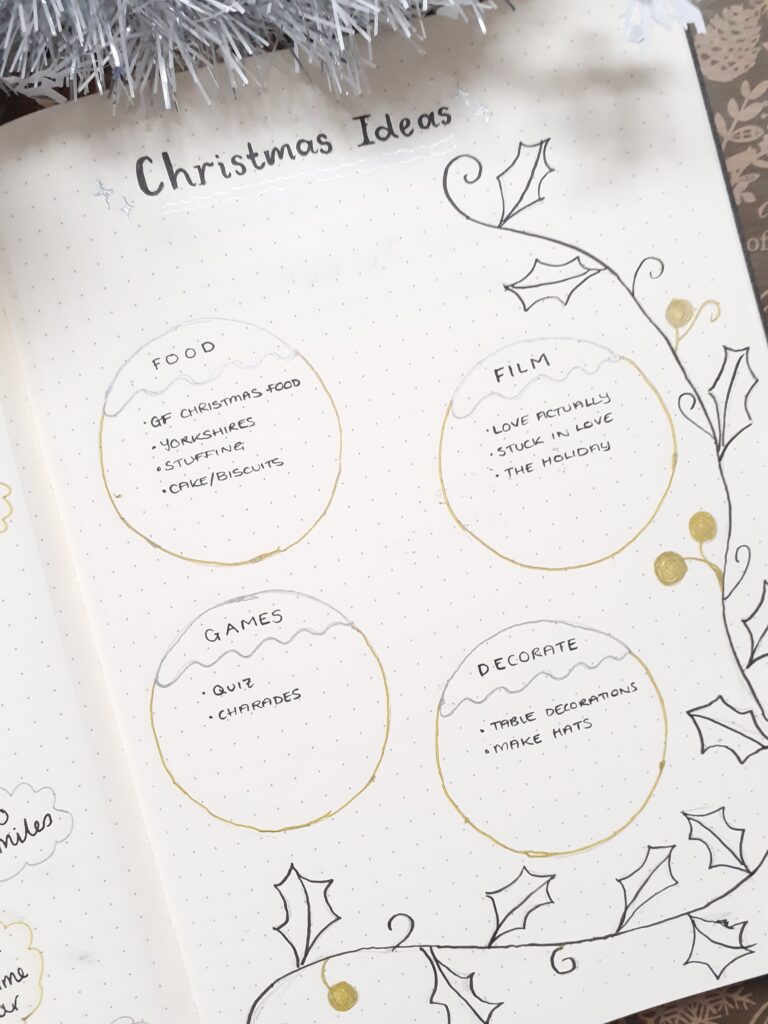 Christmas Ideas
FOOD
• GF CHRISTMAS FOOD
• YORKSHIRES
• STUFFING
• CAKE/BISCUITS
FILM
• LOVE ACTUALLY
• STUCK IN LOVE
• THE HOLIDAY
GAMES
• QUIZ
• CHARADES
DECORATE
• TABLE DECORATIONS
• MAKE HATS
miles
of